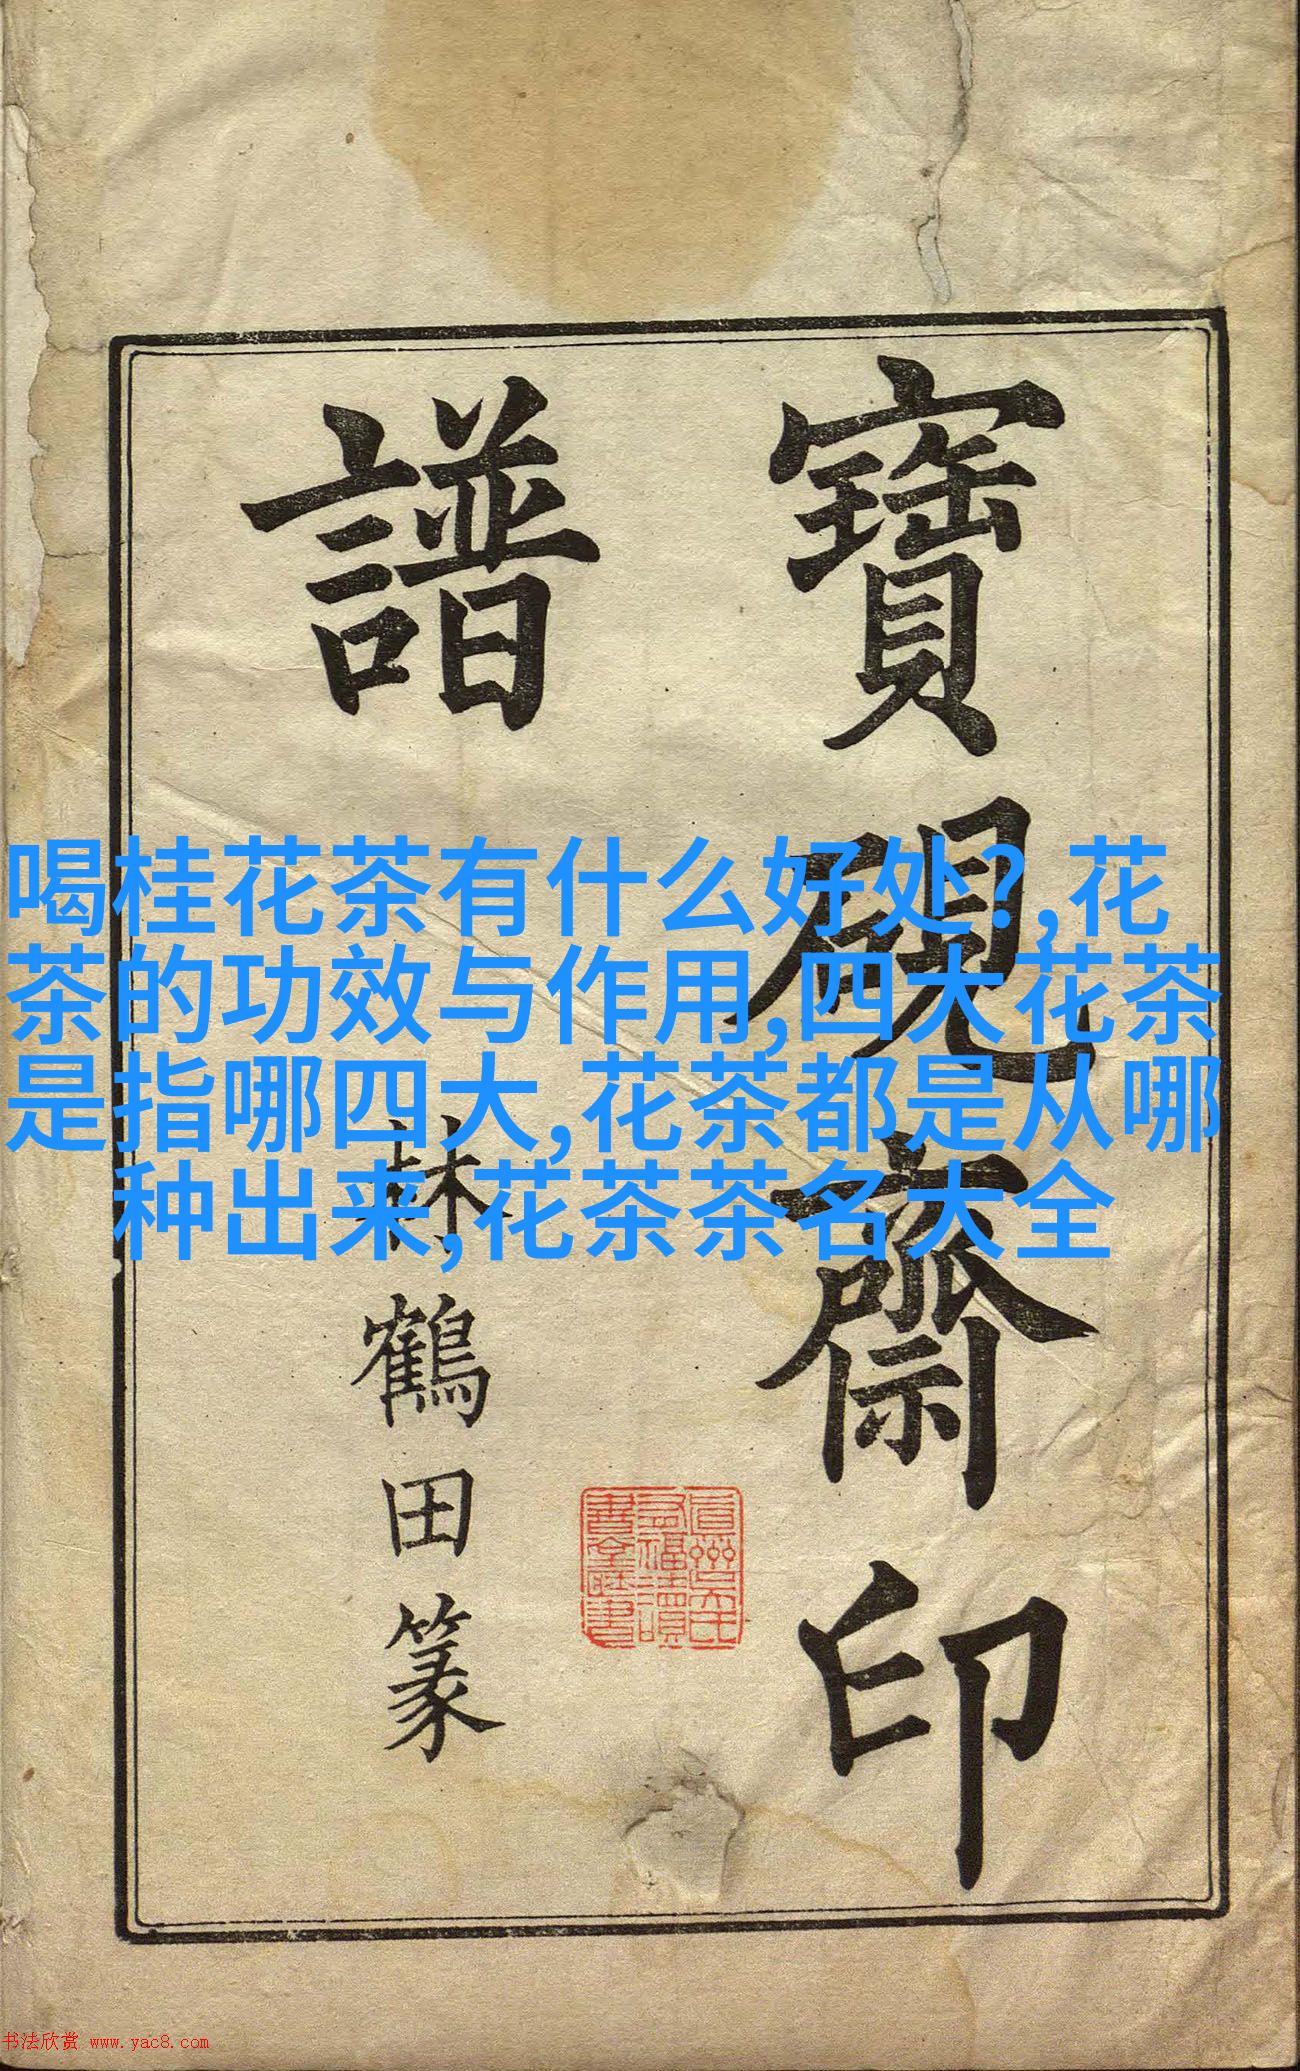 寶硯齋印
譜
林鶴田篆
喝桂花茶有什么好处?,花
茶的功效与作用,四大花茶
是指哪四大,花茶都是从哪
种出来,花茶茶名大全
书法欣赏 www.yac8.com